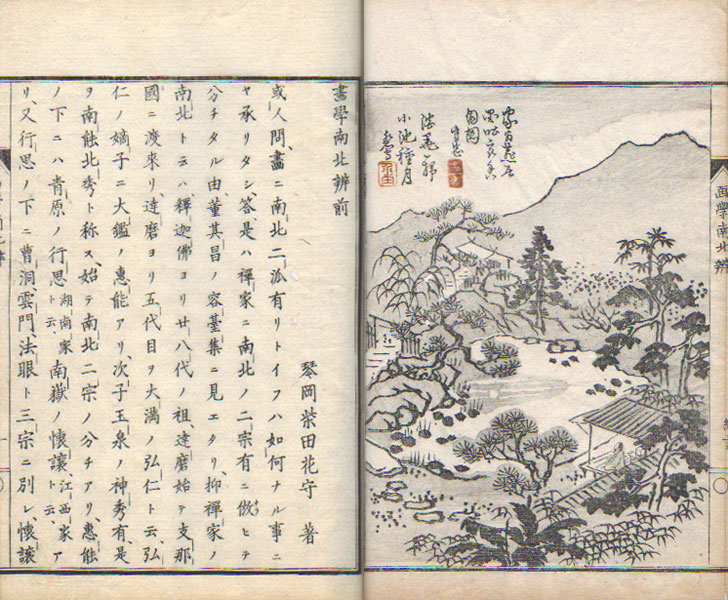 画學南北辨
小池種月
畫學南北辨前
琴岡柴田花守 著
或人問、畫ニ南北二泒有リトイフハ如何ナル事ニ
ヤ承リタシ、答、是ハ禪家ニ南北ノ二宗有ニ倣ヒテ
分チタル由、董其昌ノ容臺集ニ見エタリ、抑禪家ノ
南北トハ釋迦佛ヨリ廿八代ノ祖、達磨始テ支那
國ニ渡來リ、達磨ヨリ五代目ヲ大満ノ弘仁ト云、弘
仁ノ嫡子ニ大鑑ノ惠能アリ、次子玉泉ノ神秀有、是
ヲ南能北秀ト称ス、始テ南北二宗ノ分チアリ、惠能
ノ下ニハ青原ノ行思湖南家ト云、南嶽ノ懷讓江西家ト云、ア
リ、又行思ノ下ニ曹洞雲門法眼ト三宗ニ別レ懷讓